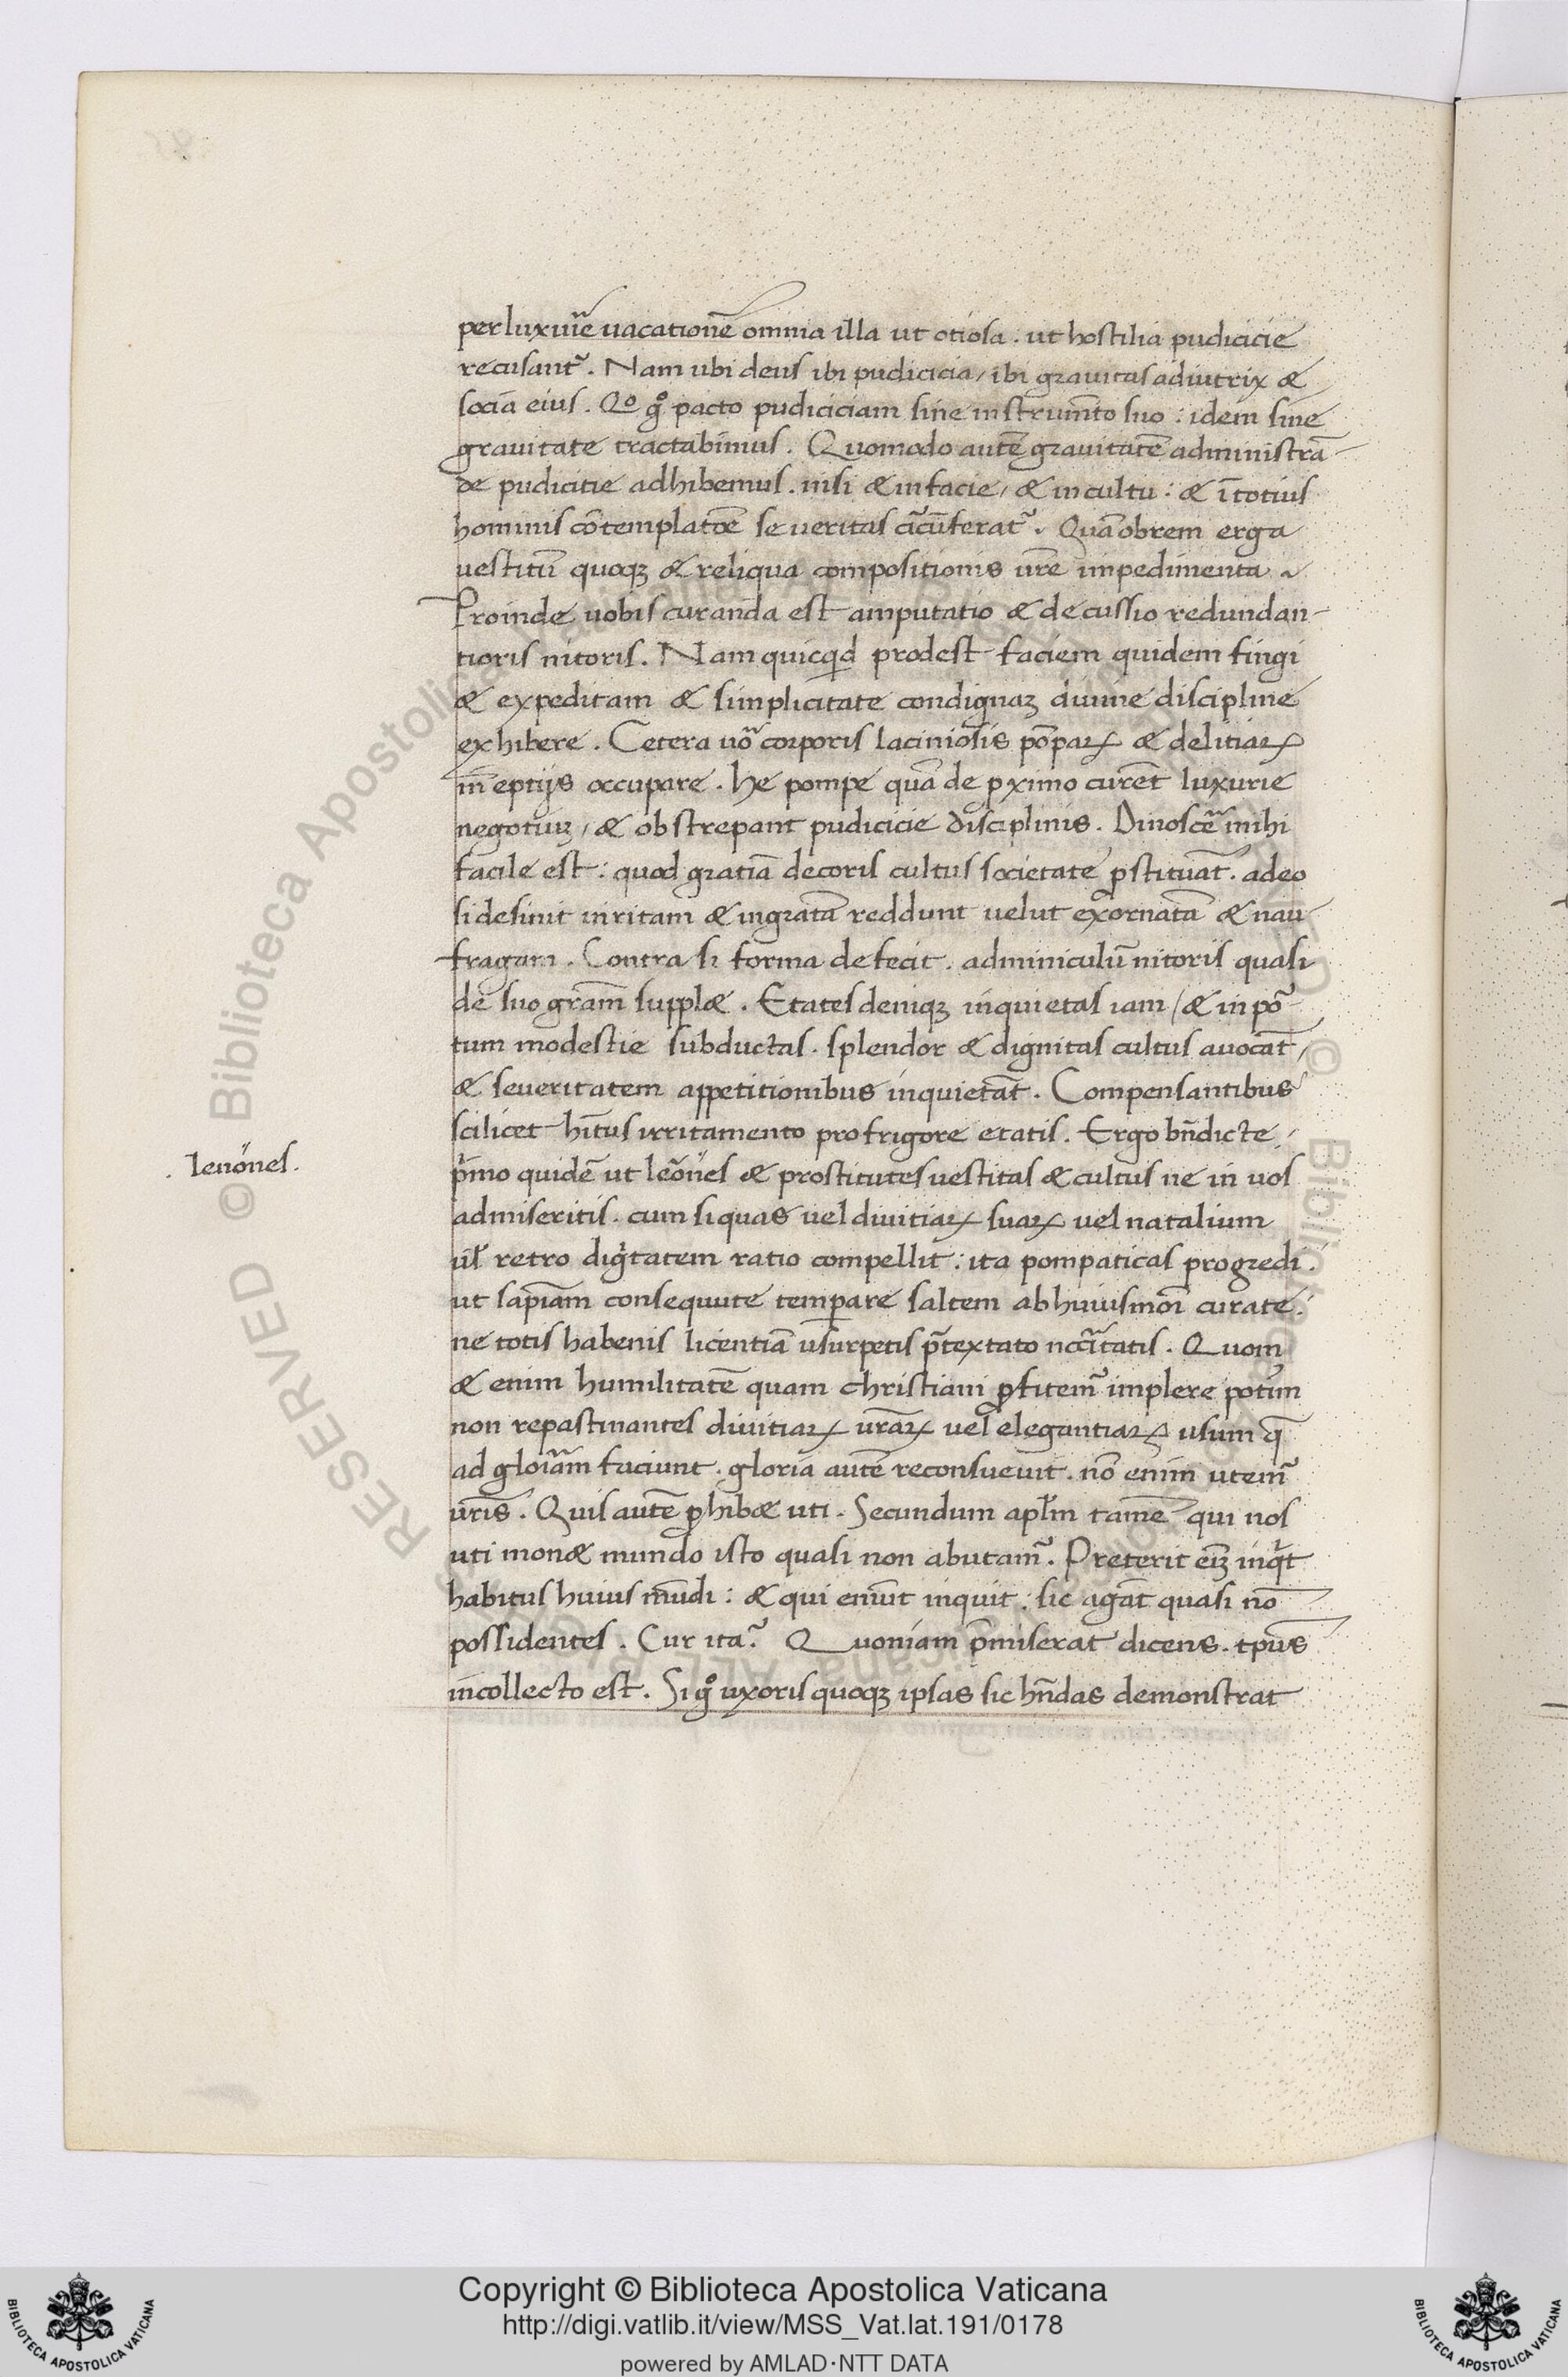 per luxurie͂ uacatione͂ omnia illa ut otiosa . ut hostilia pudicicie
recusant᷑ . Nam ubi deus ibi pudicicia / ibi grauitas adiutrix &
socia eius . Qo gͦ pacto pudiciciam sine instrum̄to suo : idem sine
grauitate tractabimus . Quomodo aute͂ grauitate͂ administra͂
de pudicitie adhibemus . nisi & in facie / & in cultu : & ī totius
hominis cōtemplatōe seueritas circūferat᷑ . Quāobrem erga
uestitū quoqꝫ & reliqua compositionis ur̄e impedimenta
Proinde uobis curanda est amputatio & decussio redundan-
tioris nitoris . Nam quicqd prodest faciem quidem fingi
& expeditam & simplicitate condignaꝫ diuine discipline
exhibere . Cetera uō corporis laciniosis pōpaꝝ & delitiaꝝ
in eptijs occupare . he pompe quā de ꝓximo curēt luxurie
negotiuꝫ / & obstrepant pudicicie disciplinis . Dinosc̄e mihi
facile est : quod gratiā decoris cultus societate ꝓstituāt . adeo
si desinit inritam & ingratā reddunt uelut exornatā & nau
fragam . Contra si forma defecit . adminiculū nitoris quasi
de suo gram̄ suppl& . Etates deniqꝫ inquietas iam / & in por̄
tum modestie subductas . splendor & dignitas cultus auocāt /
& seueritatem appetitionibus inquietāt . Compensantibus
scilicet hītus irritamento pro frigore etatis . Ergo bn̄dicte /
. lenónes .
pͥmo quidē ut leōnes & prostitutes uestitas & cultus ne in uos
admiseritis . cum si quas uel diuitiaꝝ suaꝝ uel natalium
ul̄ retro digͥtatem ratio compellit : ita pompaticas progredi .
ut sapīam consequute temperare saltem ab huiusmōi curate .
ne totis habenis licentiā usurpetis p̄textato nccītatis . Quom
& enim humilitatē quam christiani ꝓfitem᷑ implere potim
non repastinantes diuitiaꝝ urāꝝ uel elegantiaꝝ usum q̄
ad gloīam faciunt . gloria autē reconsueuit . nō enim utem᷑
ur̄is . Quis autē ꝓhib& uti . Secundum apl̄m tamē qui nos
uti mon& mundo isto quasi non abutam᷑ . Preterit eīꝫ inqͥt
habitus huius mūdi : & qui emūt inquit : sic agāt quasi nō
possidentes . Cur ita ? Quoniam p̄miserat dicens . tp̄us
incollecto est . Si gͦ uxoris quoqꝫ ipsas sic hn̄das demonstrat
RESERVED © Biblioteca Apostolica Vaticana
Copyright © Biblioteca Apostolica Vaticana
http://digi.vatlib.it/view/MSS_Vat.lat.191/0178
powered by AMLAD·NTT DATA
BIBLIOTECA APOSTOLICA VATICANA
BIBLIOTECA APOSTOLICA VATICANA